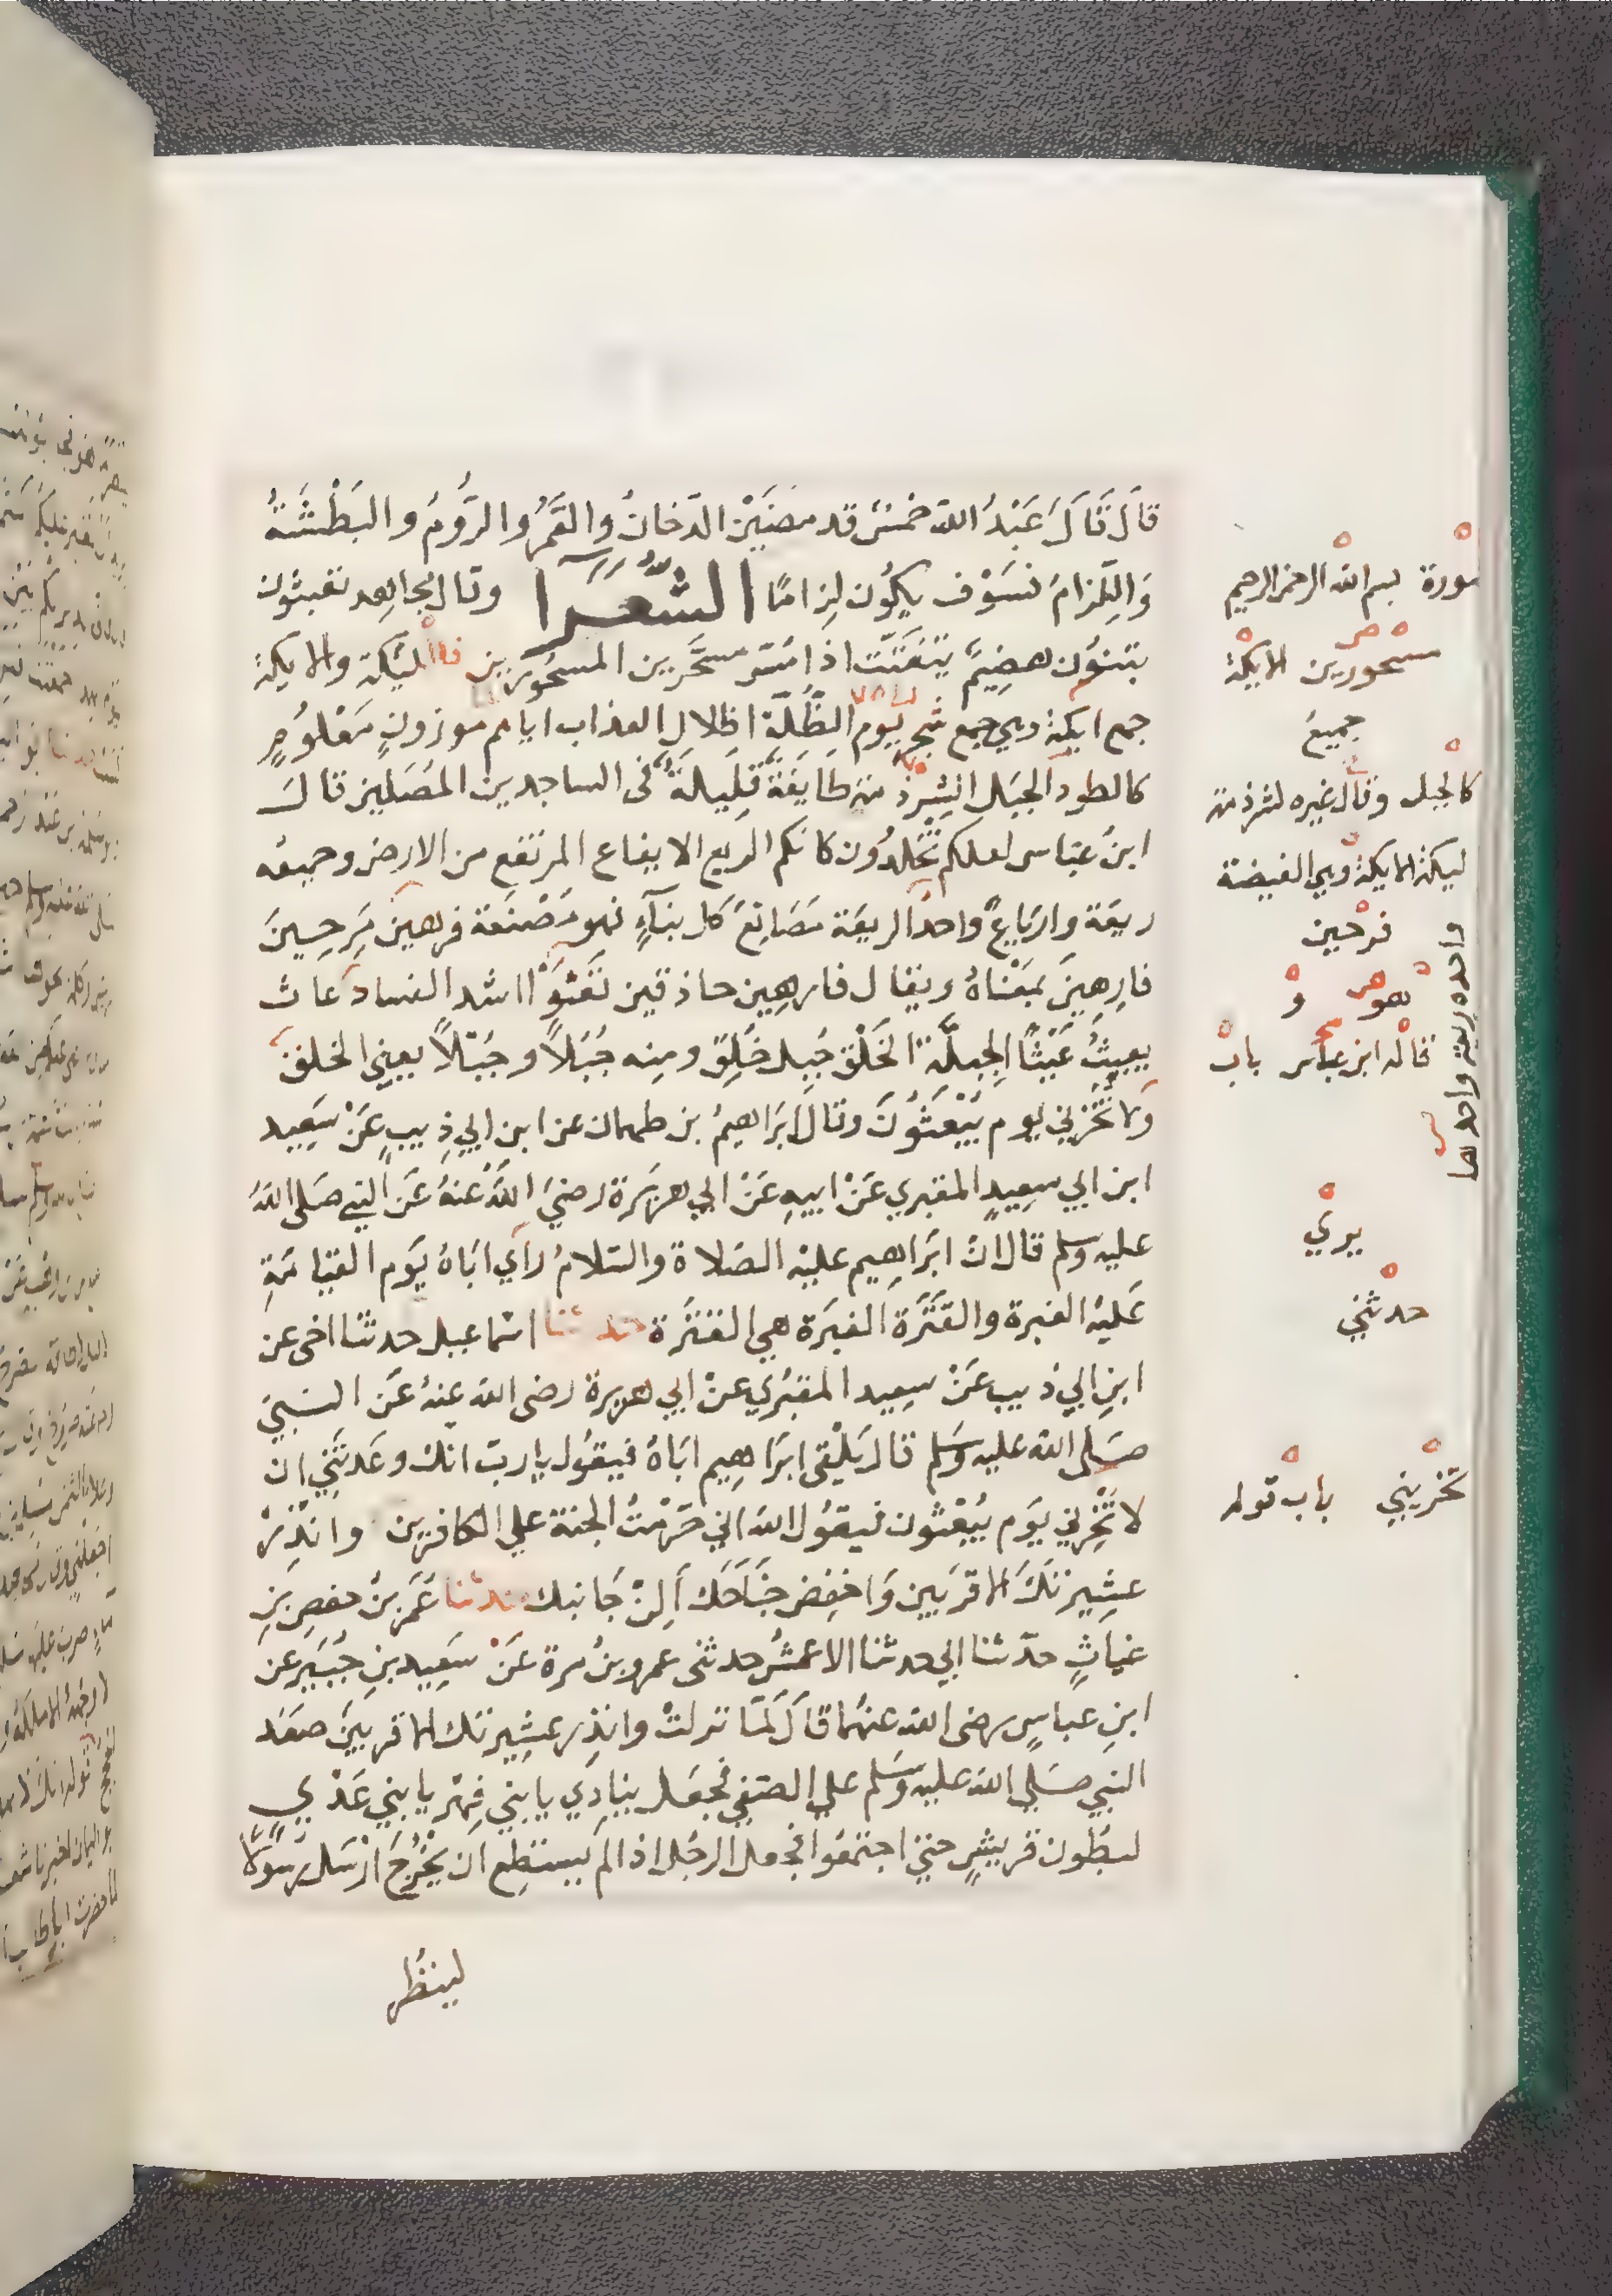 قَالَ قَالَ عَبْدُ اللّه خمسٌ قد مضَيْن الدّخانُ والقَمرُ والرُّومُ والبَطْشَةُ
وَاللِّزامُ فسَوْف يكوُن لِزامًا الشُّعَرَا وقال مجاهد تعبثُون
تبنُون هضِيمٌ يتفَتّت اذا مُسّ مسَحَّرين المسحُورين فاالليْكَة والايكة
جمع ايكة وهي جمع شجر يَوم الظُّلّة اظلال العذاب اياهم موزونٍ مَعْلُومٍ
كالطود الجبَل الشِرْذمة طَايفَة قَلِيلَةٌ في الساجدين المُصَلين قالَ
ابنُ عبّاس لعلكم تَخْلُدُون كانكم الريع الايفاع المرتفع من الارض وجمعه
ريعَة وارياعٌ واحد الريعَة مَصَانِعَ كل بنآءٍ فهو مَصْنَعَة فرهينَ مَرِحِينَ
فارِهِينَ بمَعْنَاهُ ويقال فارهِين حاذقين تَعْثَوْا اشد الفساد عَاث
يعيثُ عَيْثًا الجِبلَّة الخَلْق جُبل خُلِقَ ومِنه جُبُلاً وجُبُلاً يعني الخلقَ
وَلا تُخْزِني يوم يُبْعَثُونَ وقال ابرَاهيمُ بن طهمان عن ابن ابي ذِيبٍ عَنْ سَعِيد
ابن ابي سعِيدٍ المقبري عَنْ ابيهِ عَنْ ابي هريَرة رضيَ اللهُ عَنهُ عَن النبي صَلى اللهُ
عليه وسلم قال انّ ابرَاهِيم عليْه الصّلاة والسّلامُ رَاي ابَاهُ يَوم القيامَةِ
عَليْه الغبرة والقَتَرَة الغبَرة هي القَتَرة حدثنا اسماعيل حدثنا اخي عن
ابنِ ابي ذيب عَنْ سعِيد المقبُري عنْ ابي هريرة رضى الله عنهُ عَن النبيّ
صَلى الله عليه وسَلم قال يَلْقى ابرَاهِيم ابَاهُ فيقوُل يارب انّك وعَدتَنِي ان
لا تُخْزِني يَوم يُبْعثون فيقوُل اللهُ اني حَرَّمْتُ الجنة علي الكافرين وانْذِرْ
عشِيرتكَ الاقربين وَاخفِض جنَاحَك اَلِنْ جَانبك حدثنا عُمَر بنُ حفصِ بنِ
غياثٍ حدّثنا ابي حدثنا الاعمشُ حدثنى عمرو بنُ مرة عَنْ سَعِيد بنِ جُبَير عن
ابنِ عباسٍ رضى الله عنهُما قَالَ لمَا نزلتْ وانذِر عشِيرتك الاقربينَ صعَد
النبي صَلى الله عليه وسَلم علي الصّفي فجعَل ينادِي يا بني فِهْر يا بني عَدْي
لبطُون قريشٍ حتي اجتمعُوا فجعل الرجُل اذا لم يستطِع ان يخْرُج اَرْسَل رسُوًلا
لينظُر
سُورة بسم الله الرحمن الرحيم
مسحورين الايكة
جميعُ
كالجبل وقال غيره لشرذمة
ليكة الايكة وهي الغيضة
فرحين
واحده ريعة واحدها
هو و
قاله ابن عباس باب
يري
حدثني
تخزيني باب قوله